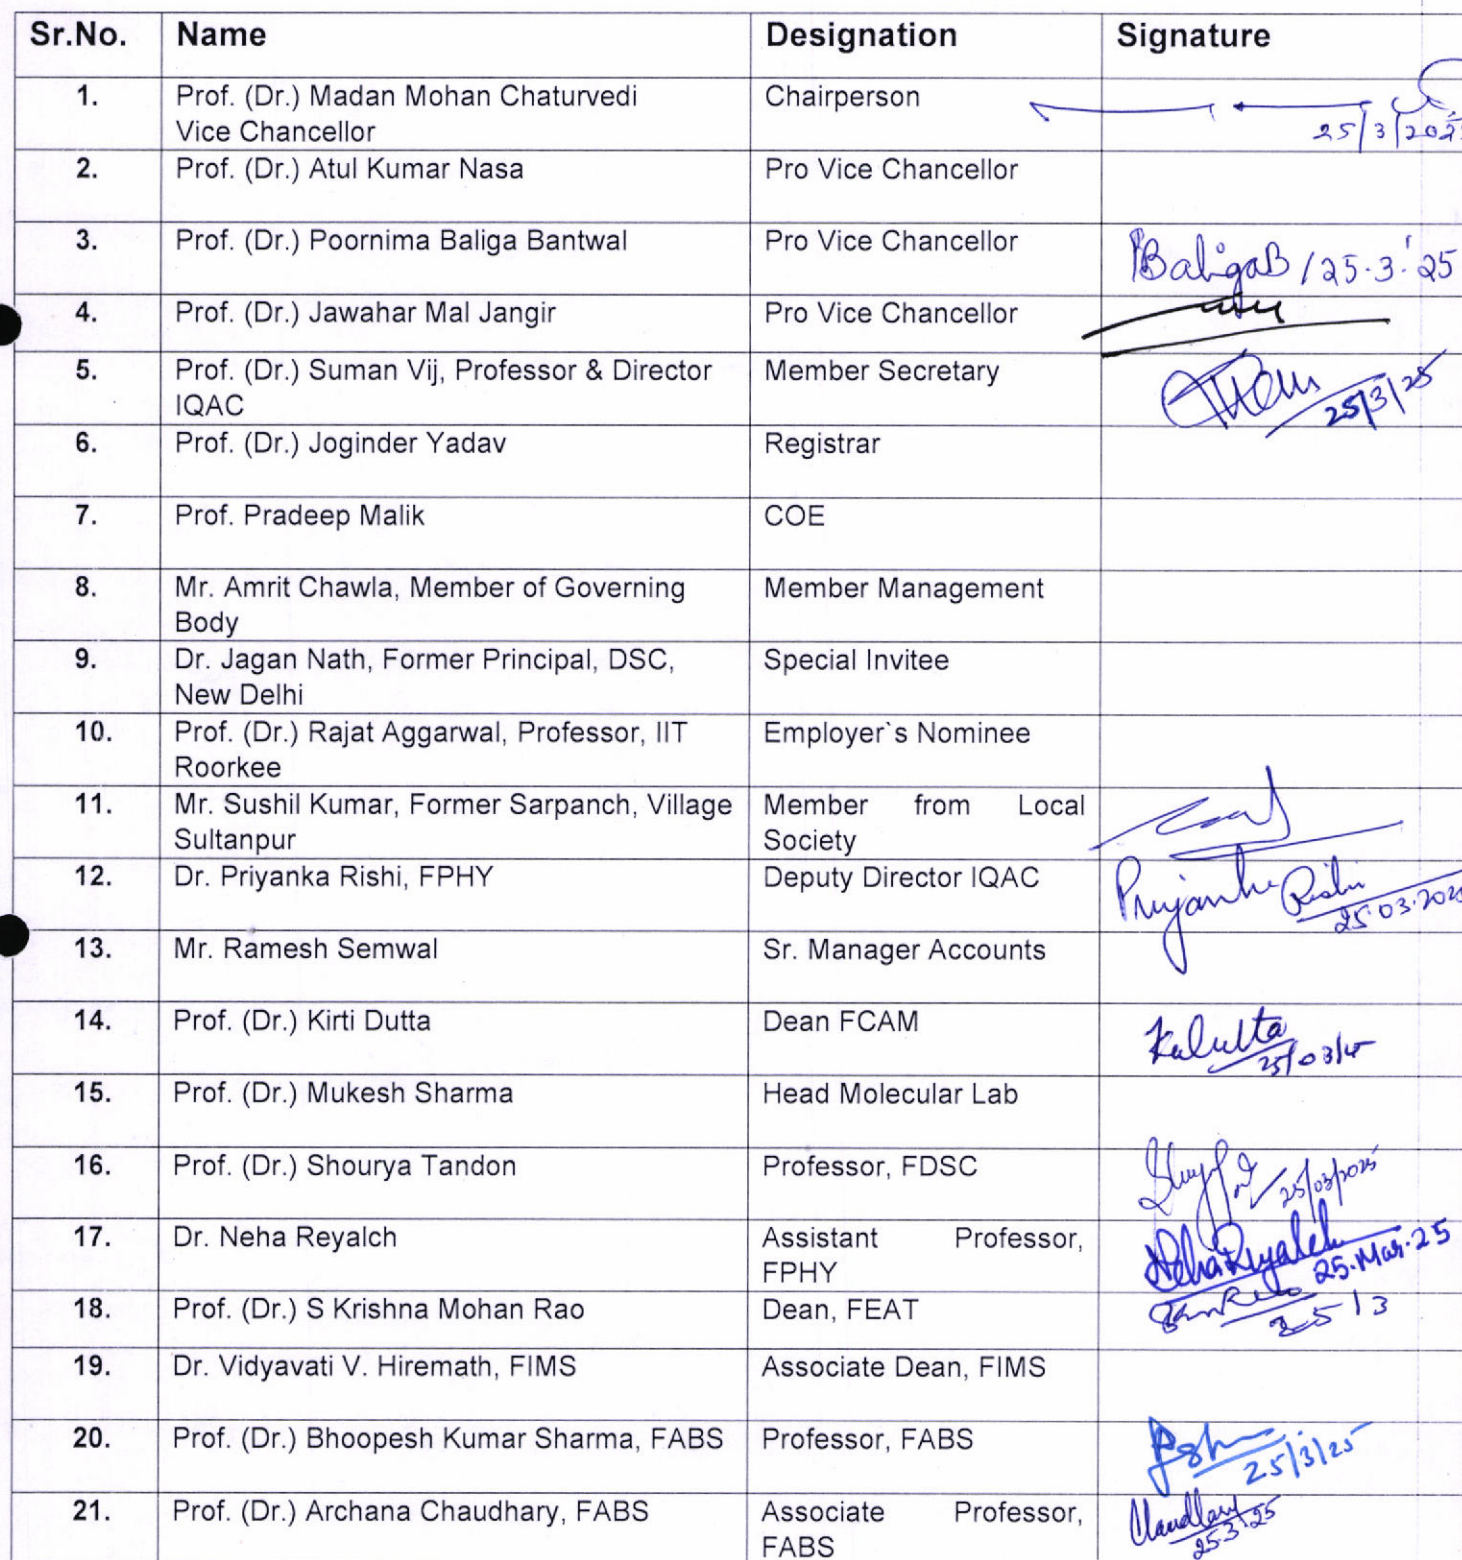 Sr.No. Name Designation Signature
1. Prof. (Dr.) Madan Mohan Chaturvedi Chairperson
Vice Chancellor 25/3/202
2. Prof. (Dr.) Atul Kumar Nasa Pro Vice Chancellor
3. Prof. (Dr.) Poornima Baliga Bantwal Pro Vice Chancellor BaligaB / 25.3.'25
4. Prof. (Dr.) Jawahar Mal Jangir Pro Vice Chancellor
5. Prof. (Dr.) Suman Vij, Professor & Director Member Secretary 25/3/25
IQAC
6. Prof. (Dr.) Joginder Yadav Registrar
7. Prof. Pradeep Malik COE
8. Mr. Amrit Chawla, Member of Governing Member Management
Body
9. Dr. Jagan Nath, Former Principal, DSC, Special Invitee
New Delhi
10. Prof. (Dr.) Rajat Aggarwal, Professor, IIT Employer`s Nominee
Roorkee
11. Mr. Sushil Kumar, Former Sarpanch, Village Member from Local
Sultanpur Society
12. Dr. Priyanka Rishi, FPHY Deputy Director IQAC Priyanka Rishi
25.03.202
13. Mr. Ramesh Semwal Sr. Manager Accounts
14. Prof. (Dr.) Kirti Dutta Dean FCAM
25/03/25
15. Prof. (Dr.) Mukesh Sharma Head Molecular Lab
16. Prof. (Dr.) Shourya Tandon Professor, FDSC 25/03/2025
17. Dr. Neha Reyalch Assistant Professor, Neha Reyalch
FPHY 25.Mar.25
18. Prof. (Dr.) S Krishna Mohan Rao Dean, FEAT
25/3
19. Dr. Vidyavati V. Hiremath, FIMS Associate Dean, FIMS
20. Prof. (Dr.) Bhoopesh Kumar Sharma, FABS Professor, FABS
25/3/25
21. Prof. (Dr.) Archana Chaudhary, FABS Associate Professor, Chaudhary
FABS 25.3.25